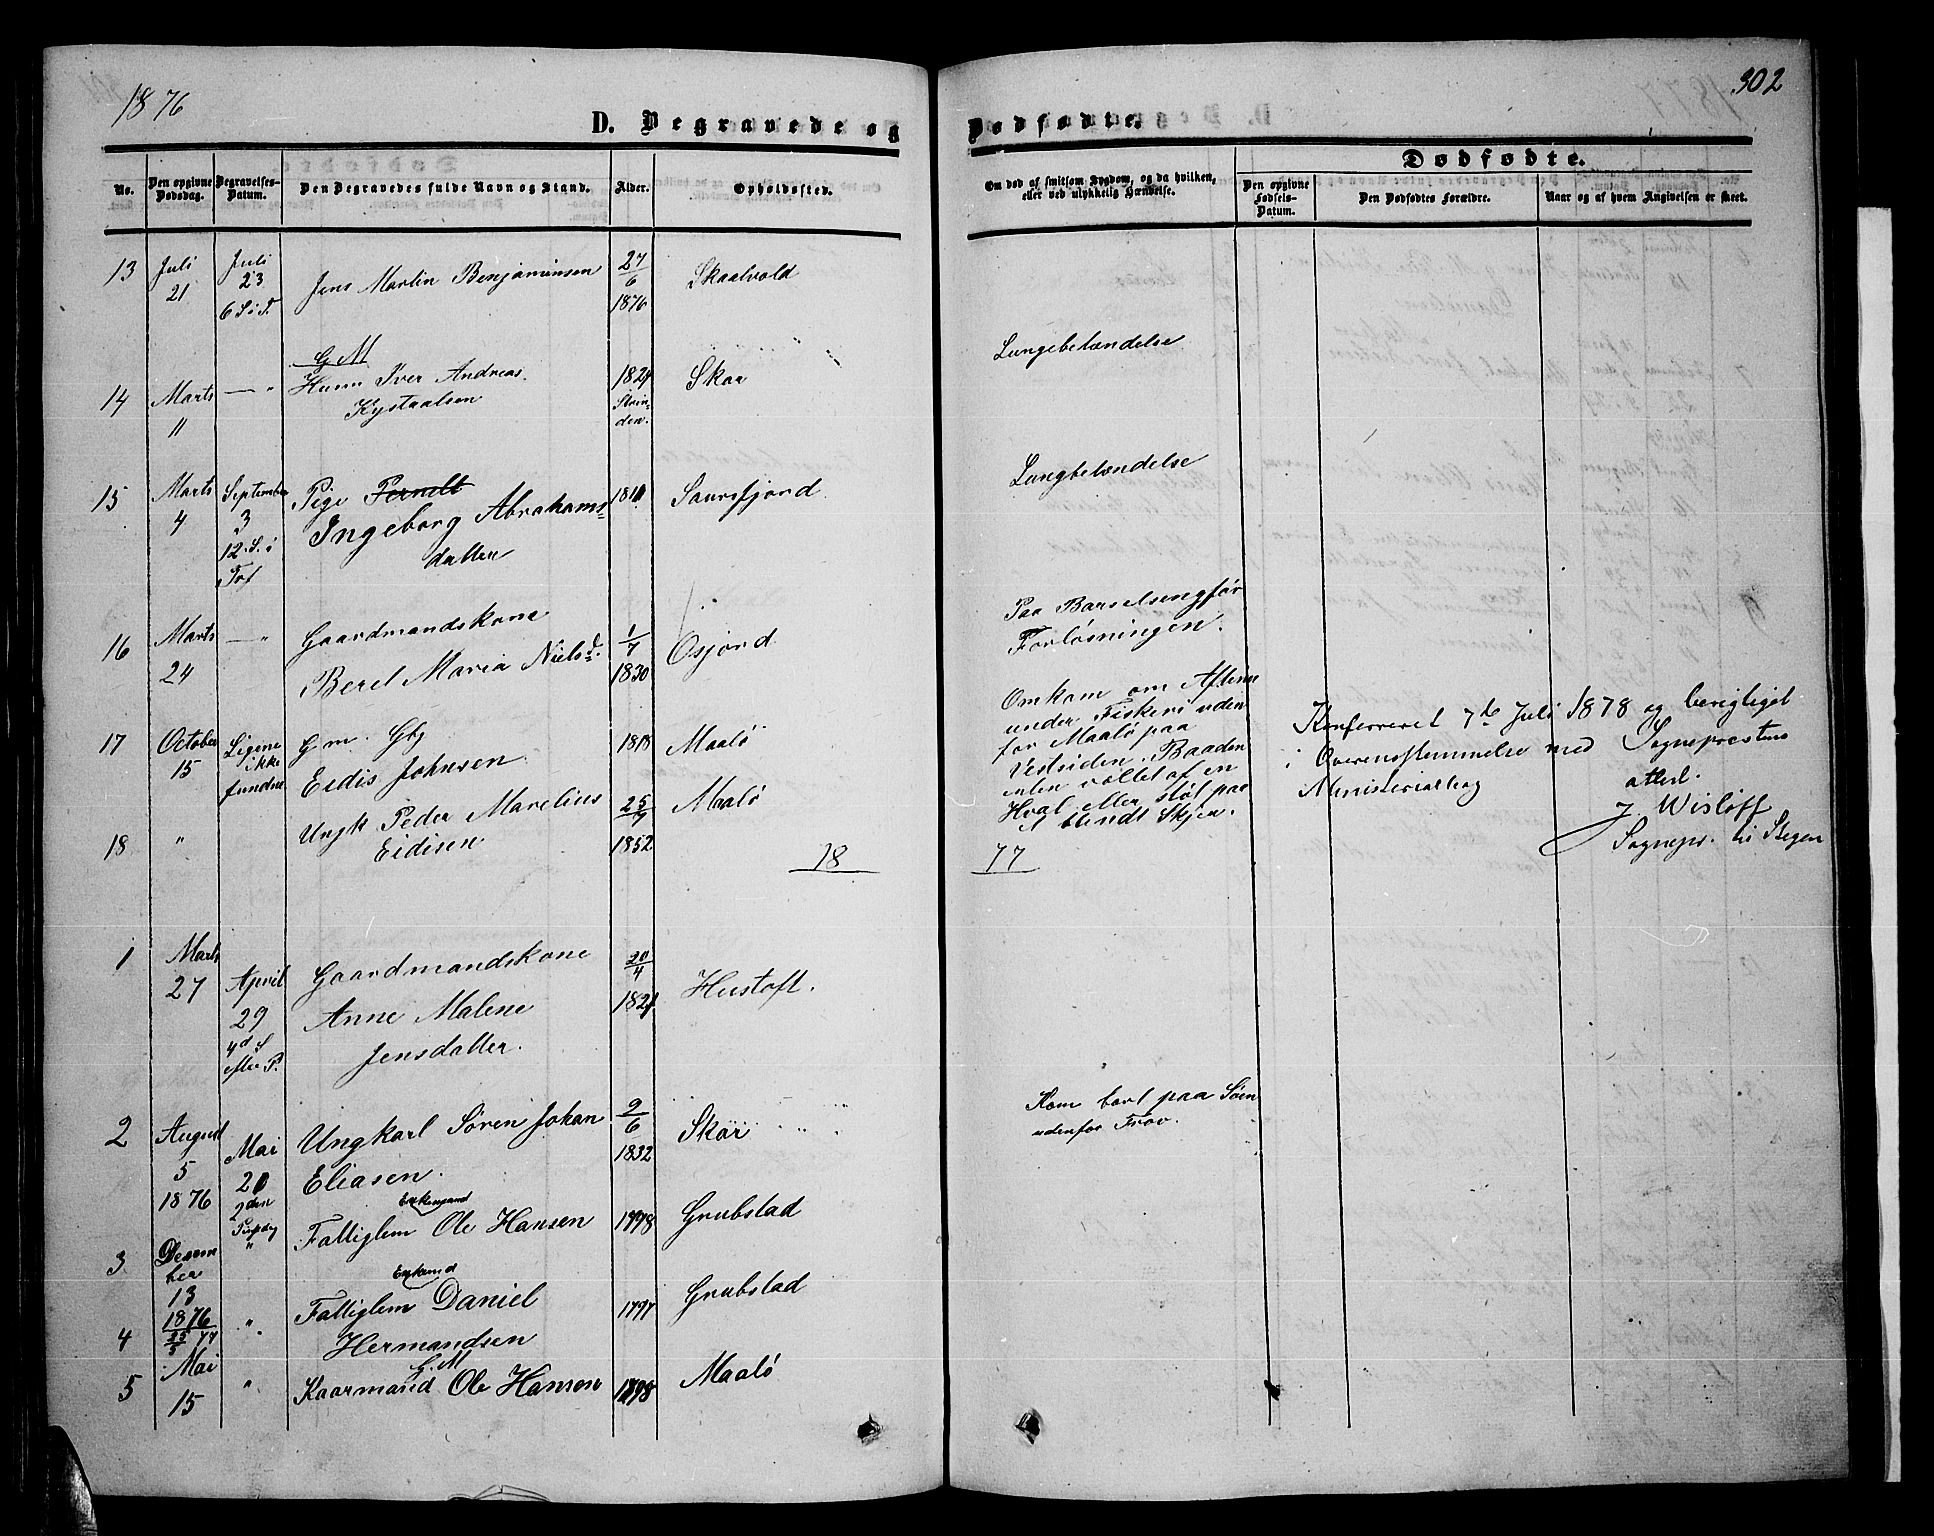 1876
302
D. Begravede og Dødfødte.
No.
Den opgivne Dødsdag.
Begravelses-Datum.
Den Begravedes fulde Navn og Stand.
Alder.
Opholdssted.
Om død af smitsom Sygdom, og da hvilken,
eller ved ulykkelig Hændelse.
Dødfødte.
Den opgivne Fødsels-Datum.
Den Dødfødtes Forældre.
Naar og af hvem Angivelsen er skeet.
13 Juli 21 Juli 23 6 S. i T. Jens Martin Benjaminsen 27/6 1876 Skaalvold
14 Marts 11 — " G M
Husm Iver Andreas
Kystaalsen 1824 Strinden. Skar Lungebetændelse
15 Marts 4 September 3 12. S. i Tref Pige
Ingeborg Abrahams=
datter 1811 Saursfjord Lungbetændelse
16 Marts 24 — " Gaardmandskone
Berel Maria Nielsd. 1/7 1830 Osjord Paa Barselseng før
Forløsningen.
17 October 15 Ligene ikke fundne G m. Gbr
Eidis Johnsen 1818 Maalø Omkom om Aftenen
under Fiskeri uden
for Maalø paa
Vestsiden. Baaden
enten væltet af en
Hval eller støt paa
et blindt Skjær.
18 " Ungk Peder Marelius
Eidisen 25/7 1852 Maalø
Konfereret 7de Juli 1878 og berigtiget
i Overensstemmelse med Sognepræstens
Ministerialbog
attest.
J Wisløff
Sognepr. til Stegen
18
77
1 Marts 27 April 29 4d S efter P. Gaardmandskone
Anne Malene
Jensdatter. 20/4 1821 Hustoft.
2 August 5 1876 Mai 20 2den Pinsdag Ungkarl Søren Johan
Eliasen. 2/6 1832 Skar Kom bort paa Søen
udenfor
3 Desember 13 1876 " Enkemand
Fattiglem Ole Hansen 1798 Grubstad
4 25/5 77 " Enkemd
Fattiglem Daniel
Hermandsen 1797 Grubstad
5 Mai 15 " G. M
Kaarmand Ole Hansen 1798 Maalø